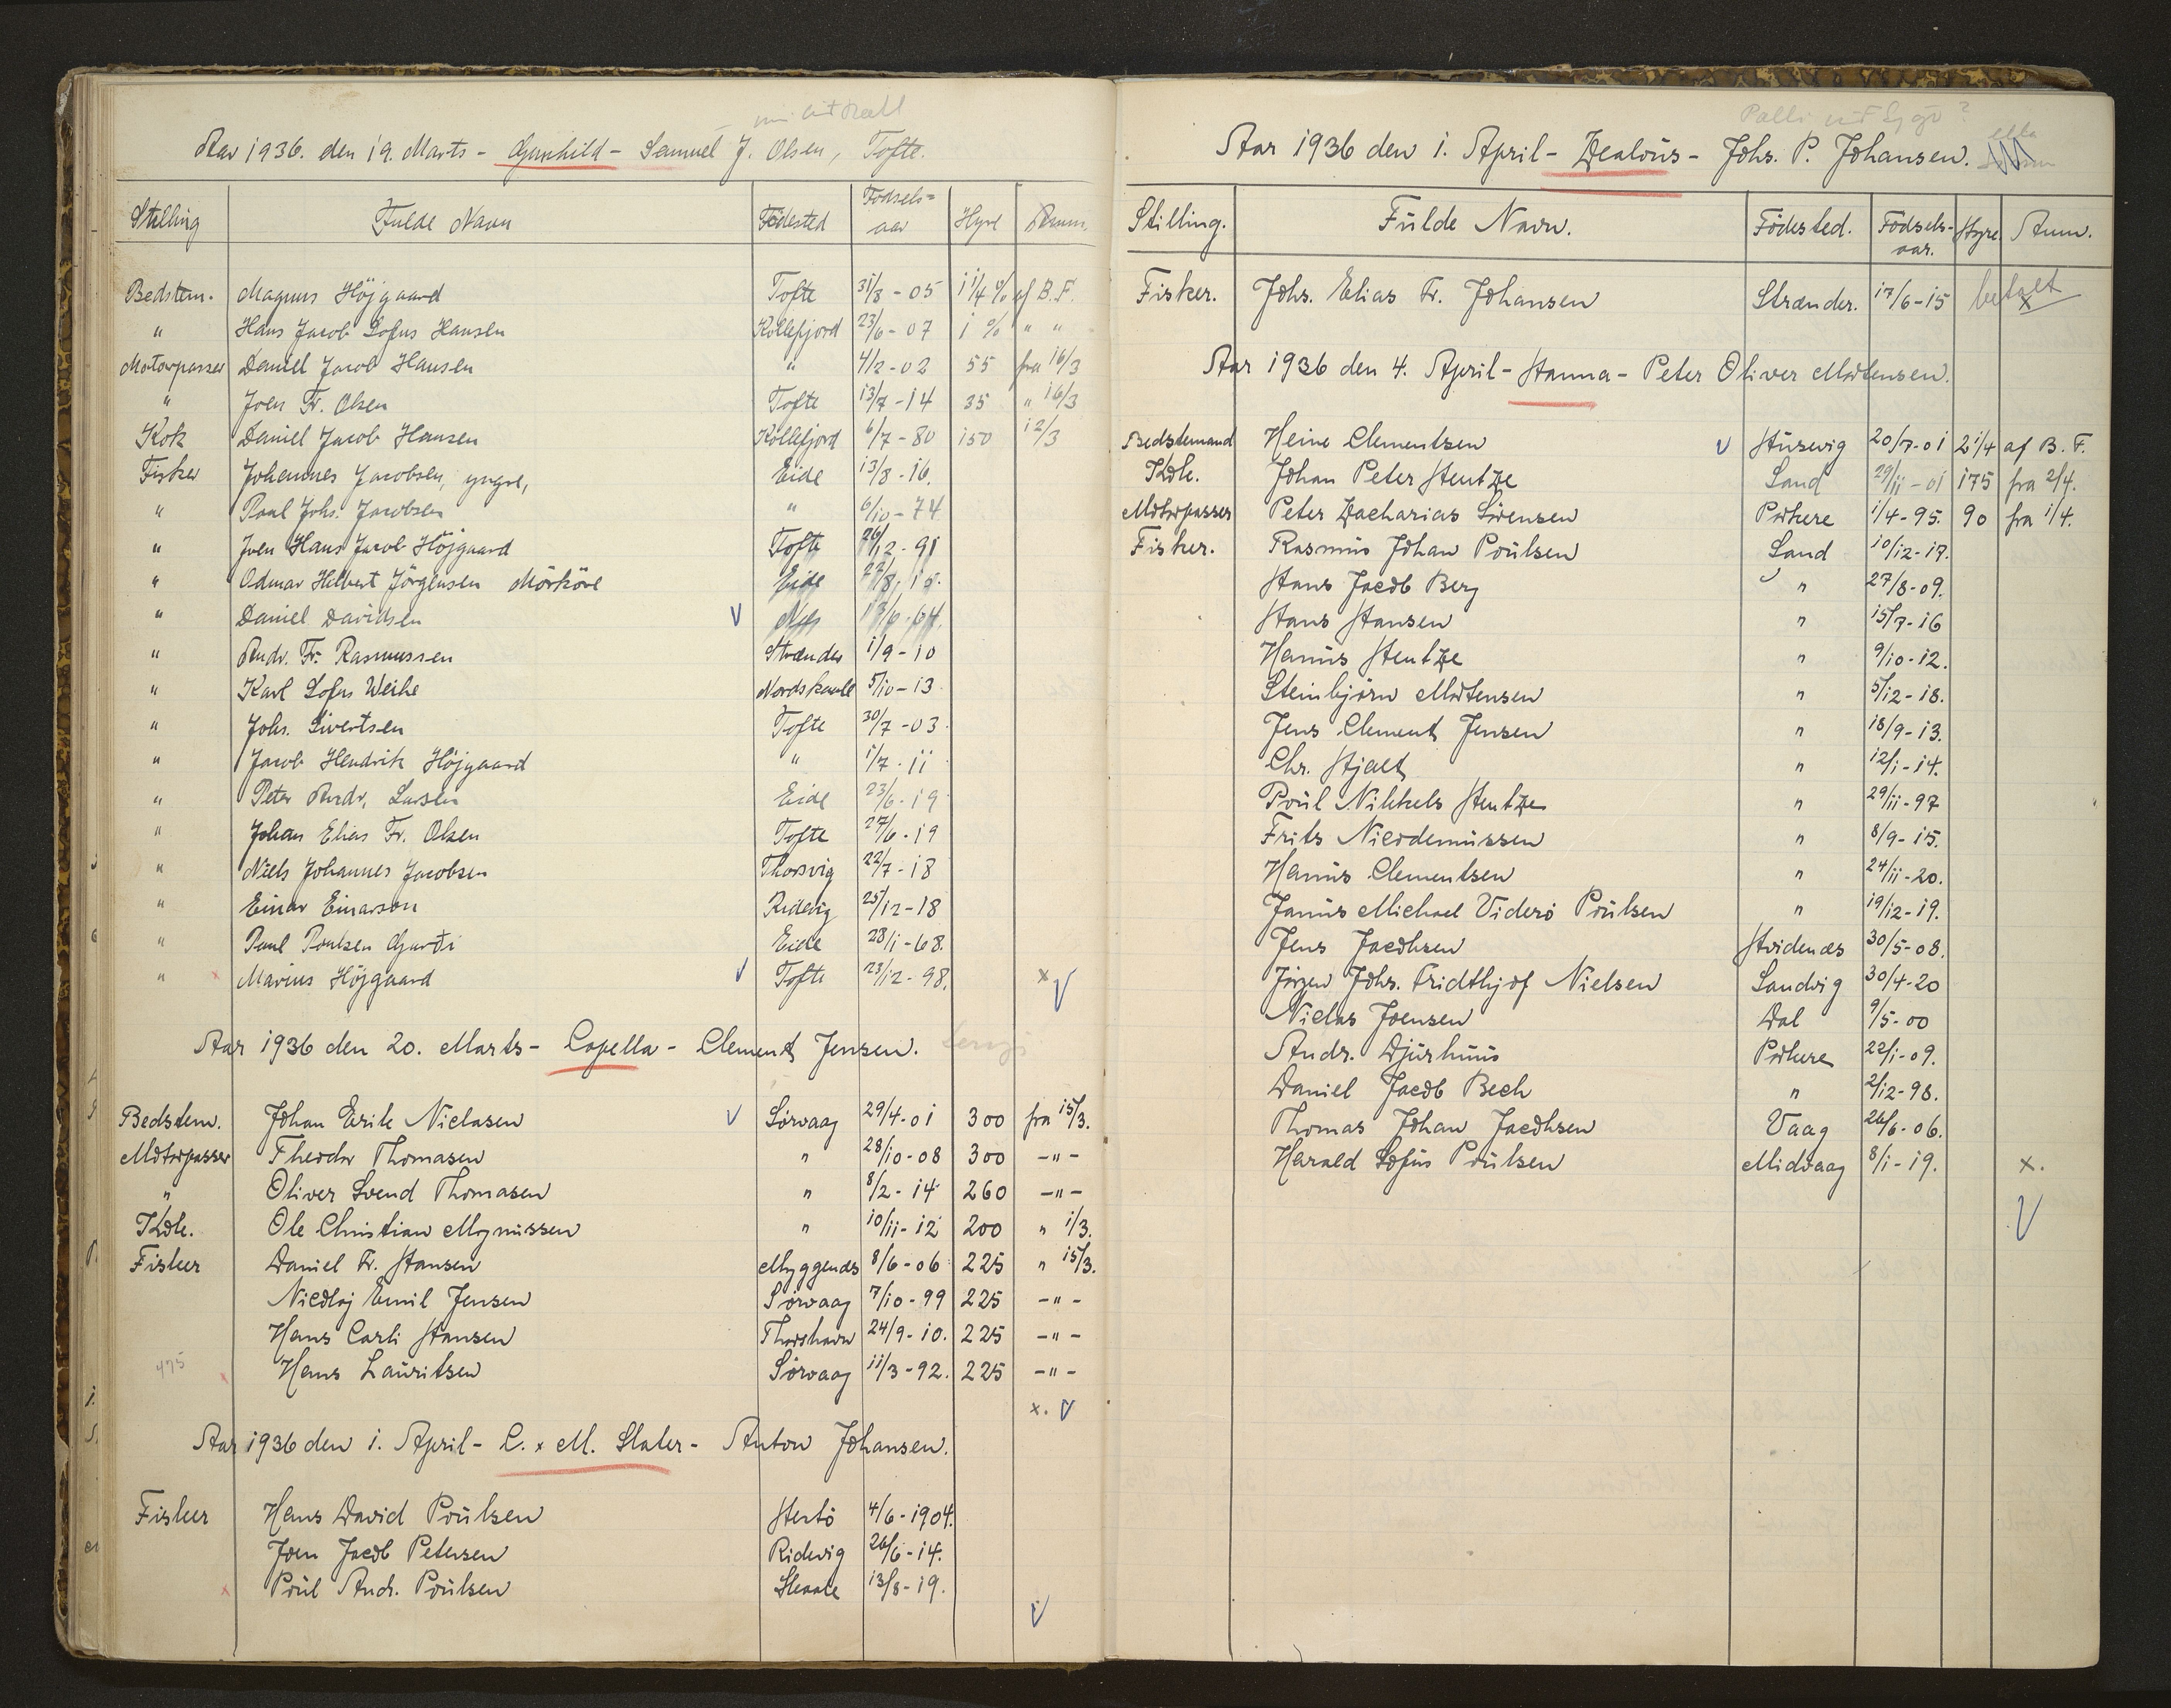 Aar 1936. den 19. Marts - Gunhild - Samuel J. Olsen, Tofte.
Stilling Fulde Navn Födested Födsels-aar Hyre Anm.
Bedstem. Magnus Höjgaard Tofte 31/8 - 05 1 1/4 % af B.F.
" Hans Jacob Sofus Hansen Kollefjord 23/6 - 07 1 % " "
Motorpasser Daniel Jacob Hansen " 4/2 - 02 55 fra 16/3
" Joen Fr. Olsen Tofte 13/7 - 14 35 " 16/3
Kok Daniel Jacob Hansen Kollefjord 6/7 - 80 150 12/3
Fisker Johannes Jacobsen, yngre, Eide 13/8 - 16.
" Poul Johs. Jacobsen " 6/10 - 74
" Joen Hans Jacob Höjgaard Tofte 26/12 - 91
" Odmar Helbert Jörgensen Mörköre Eide 22/8, 15.
" Daniel Davidsen V Nes 13/6 - 64.
" Andr. Fr. Rasmussen Strænder 1/9 - 10
" Karl Sofus Weihe Nordskaale 5/10 - 13
" Johs. Sivertsen Tofte 30/7 - 03
" Jacob Hendrik Höjgaard " 1/7 - 11
" Peter Andr. Larsen Eide 23/6 - 19
" Johan Elias Fr. Olsen Tofte 27/6 - 19
" Niels Johannes Jacobsen Thorsvig 22/7 - 18
" Einar Einarson Ridevig 25/12 - 18
" Poul Poulsen Garði Eide 28/1 - 68.
" x Marius Höjgaard V Tofte 23/12 - 98. x V
Aar 1936 den 20. Marts - Capella - Clement Jensen.
Bedstem. Johan Erik Niclasen V Sörvaag 29/4 - 01 300 fra 15/3.
Motorpasser Theodor Thomasen " 28/10 - 08 300 - " -
" Oliver Svend Thomasen " 8/2 - 14 260 - " -
Kok. Ole Christian Magnussen " 10/11 - 12 200 " 1/3.
Fisker Daniel Fr. Hansen Myggenæs 8/6 - 06 225 " 15/3.
Nicolaj Emil Jensen Sörvaag 7/10 - 99 225 - " -
Hans Carli Hansen Thorshavn 24/9 - 10. 225 - " -
475 x Hans Lauritsen Sörvaag 11/3 - 92. 225 - " -
x. V
Aar 1936 den 1. April - C. x M. Slater - Anton Johansen.
Fisker Hans David Poulsen Hestö 4/6 - 1904.
Joen Jacob Petersen Ridevig 26/6 - 14.
x Poul Andr. Poulsen Skaale 13/8 - 19.
V
Aar 1936 den 1. April - Zealous - Johs. P. Johansen.
Stilling. Fulde Navn. Födested. Födsels-aar. Hyre Anm.
Fisker. Johs. Elias Fr. Johansen Strænder. 17/6 - 15 betalt x
Aar 1936 den 4. April - Hanna - Peter Oliver Mortensen.
Bedstemand Heine Clementsen V Husevig 20/7 - 01 2 1/4 af B. F.
Kok. Johan Peter Hentze Sand 29/11 - 01 175 fra 2/4.
Motorpasser Peter Zacharias Sörensen Porkere 1/4 - 95. 90 fra 1/4.
Fisker. Rasmus Johan Poulsen Sand 10/12 - 17.
Hans Jacob Berg " 27/8 - 09.
Hans Hansen " 15/7 - 16
Hanus Hentze " 9/10 - 12.
Steinbjörn Mortensen " 5/12 - 18.
Jens Clement Jensen " 18/9 - 13.
Chr. Hjalt " 12/1 - 14.
Poul Nikkels Hentze " 29/11 - 97
Frits Nicodemussen " 8/9 - 15.
Hanus Clementsen " 24/11 - 20.
Janus Michael Viderö Poulsen " 19/12 - 19.
Jens Jacobsen Hvidenæs 30/5 - 08.
Jörgen Johs. Fridthjof Nielsen Sandvig 30/4 - 20
Niclas Joensen Dal 9/5 - 00
Andr. Djurhuus Porkere 22/1 - 09.
Daniel Jacob Bech " 2/12 - 98.
Thomas Johan Jacobsen Vaag 26/6 - 06.
Harald Sofus Poulsen Midvaag 8/1 - 19. x.
V